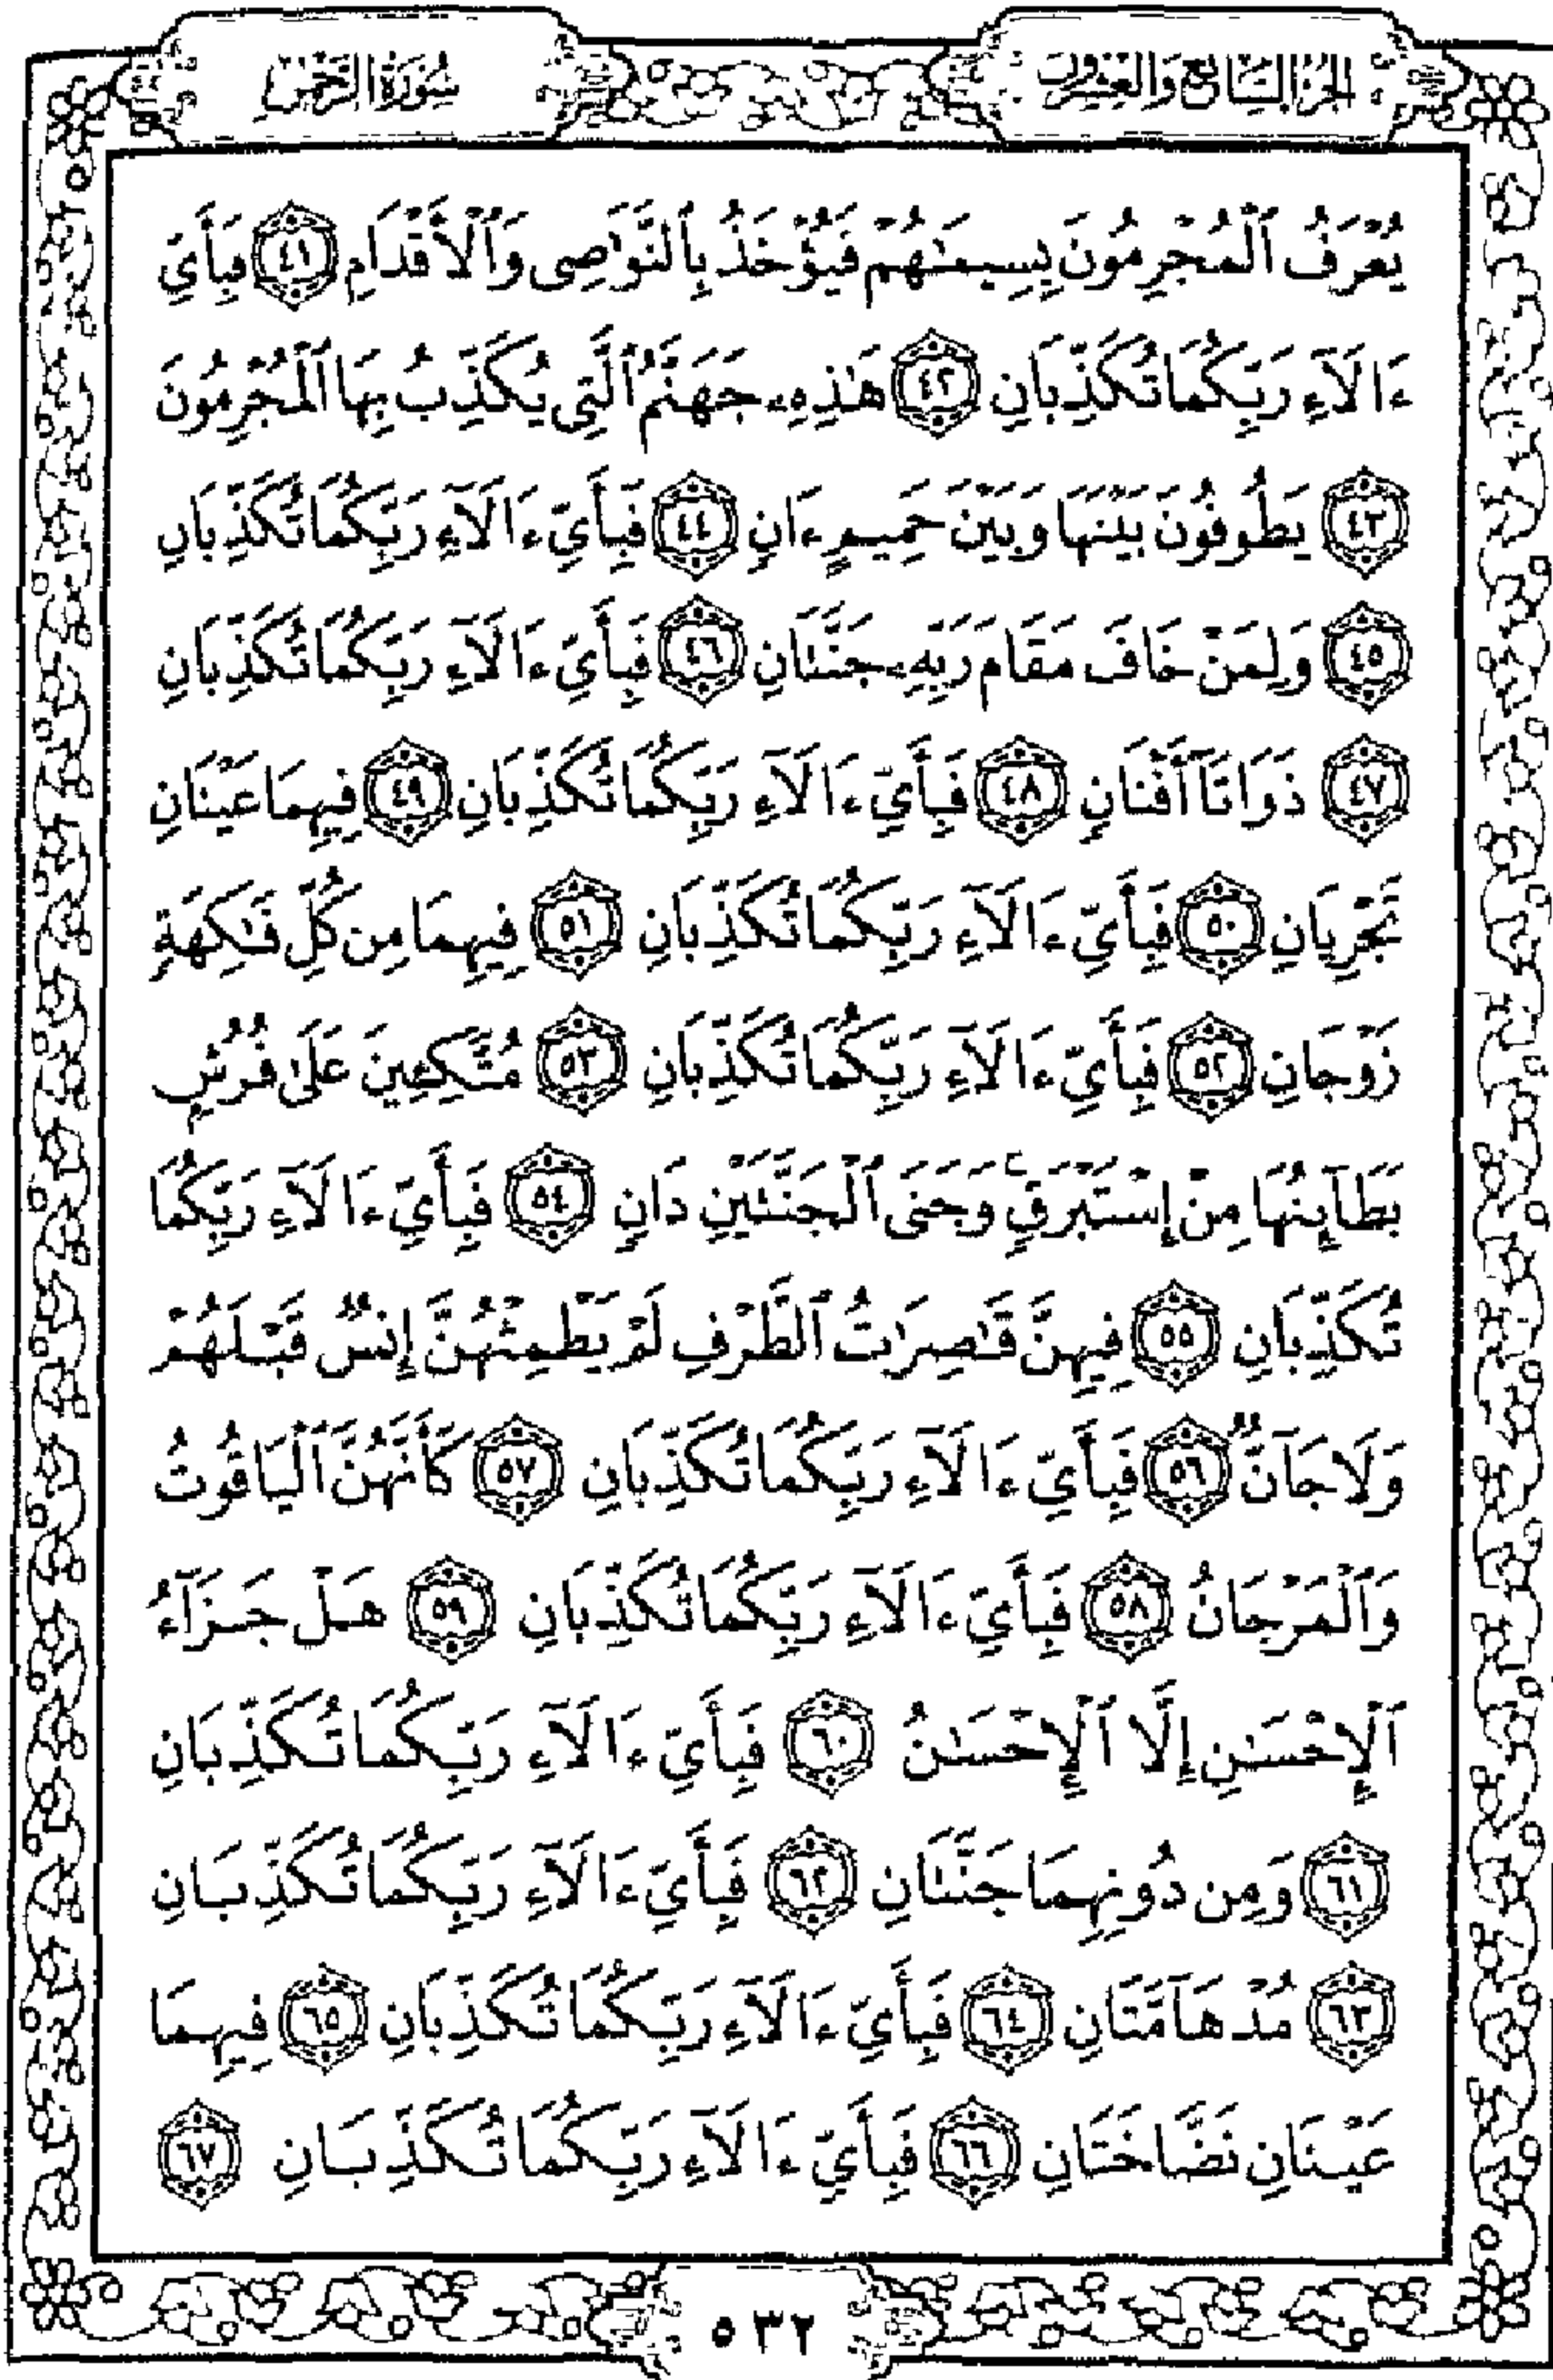 الجزء السابع والعشرون سورة الرحمن
يُعْرَفُ ٱلْمُجْرِمُونَ بِسِيمَـٰهُمْ فَيُؤْخَذُ بِٱلنَّوَٰصِى وَٱلْأَقْدَامِ ٤١ فَبِأَىِّ
ءَالَآءِ رَبِّكُمَا تُكَذِّبَانِ ٤٢ هَـٰذِهِۦ جَهَنَّمُ ٱلَّتِى يُكَذِّبُ بِهَا ٱلْمُجْرِمُونَ
٤٣ يَطُوفُونَ بَيْنَهَا وَبَيْنَ حَمِيمٍ ءَانٍ ٤٤ فَبِأَىِّ ءَالَآءِ رَبِّكُمَا تُكَذِّبَانِ
٤٥ وَلِمَنْ خَافَ مَقَامَ رَبِّهِۦ جَنَّتَانِ ٤٦ فَبِأَىِّ ءَالَآءِ رَبِّكُمَا تُكَذِّبَانِ
٤٧ ذَوَاتَآ أَفْنَانٍ ٤٨ فَبِأَىِّ ءَالَآءِ رَبِّكُمَا تُكَذِّبَانِ ٤٩ فِيهِمَا عَيْنَانِ
تَجْرِيَانِ ٥٠ فَبِأَىِّ ءَالَآءِ رَبِّكُمَا تُكَذِّبَانِ ٥١ فِيهِمَا مِن كُلِّ فَـٰكِهَةٍ
زَوْجَانِ ٥٢ فَبِأَىِّ ءَالَآءِ رَبِّكُمَا تُكَذِّبَانِ ٥٣ مُتَّكِـِٔينَ عَلَىٰ فُرُشٍۭ
بَطَآئِنُهَا مِنْ إِسْتَبْرَقٍ ۚ وَجَنَى ٱلْجَنَّتَيْنِ دَانٍ ٥٤ فَبِأَىِّ ءَالَآءِ رَبِّكُمَا
تُكَذِّبَانِ ٥٥ فِيهِنَّ قَـٰصِرَٰتُ ٱلطَّرْفِ لَمْ يَطْمِثْهُنَّ إِنسٌ قَبْلَهُمْ
وَلَا جَآنٌّ ٥٦ فَبِأَىِّ ءَالَآءِ رَبِّكُمَا تُكَذِّبَانِ ٥٧ كَأَنَّهُنَّ ٱلْيَاقُوتُ
وَٱلْمَرْجَانُ ٥٨ فَبِأَىِّ ءَالَآءِ رَبِّكُمَا تُكَذِّبَانِ ٥٩ هَلْ جَزَآءُ
ٱلْإِحْسَـٰنِ إِلَّا ٱلْإِحْسَـٰنُ ٦٠ فَبِأَىِّ ءَالَآءِ رَبِّكُمَا تُكَذِّبَانِ
٦١ وَمِن دُونِهِمَا جَنَّتَانِ ٦٢ فَبِأَىِّ ءَالَآءِ رَبِّكُمَا تُكَذِّبَانِ
٦٣ مُدْهَآمَّتَانِ ٦٤ فَبِأَىِّ ءَالَآءِ رَبِّكُمَا تُكَذِّبَانِ ٦٥ فِيهِمَا
عَيْنَانِ نَضَّاخَتَانِ ٦٦ فَبِأَىِّ ءَالَآءِ رَبِّكُمَا تُكَذِّبَانِ ٦٧
٥٣٢